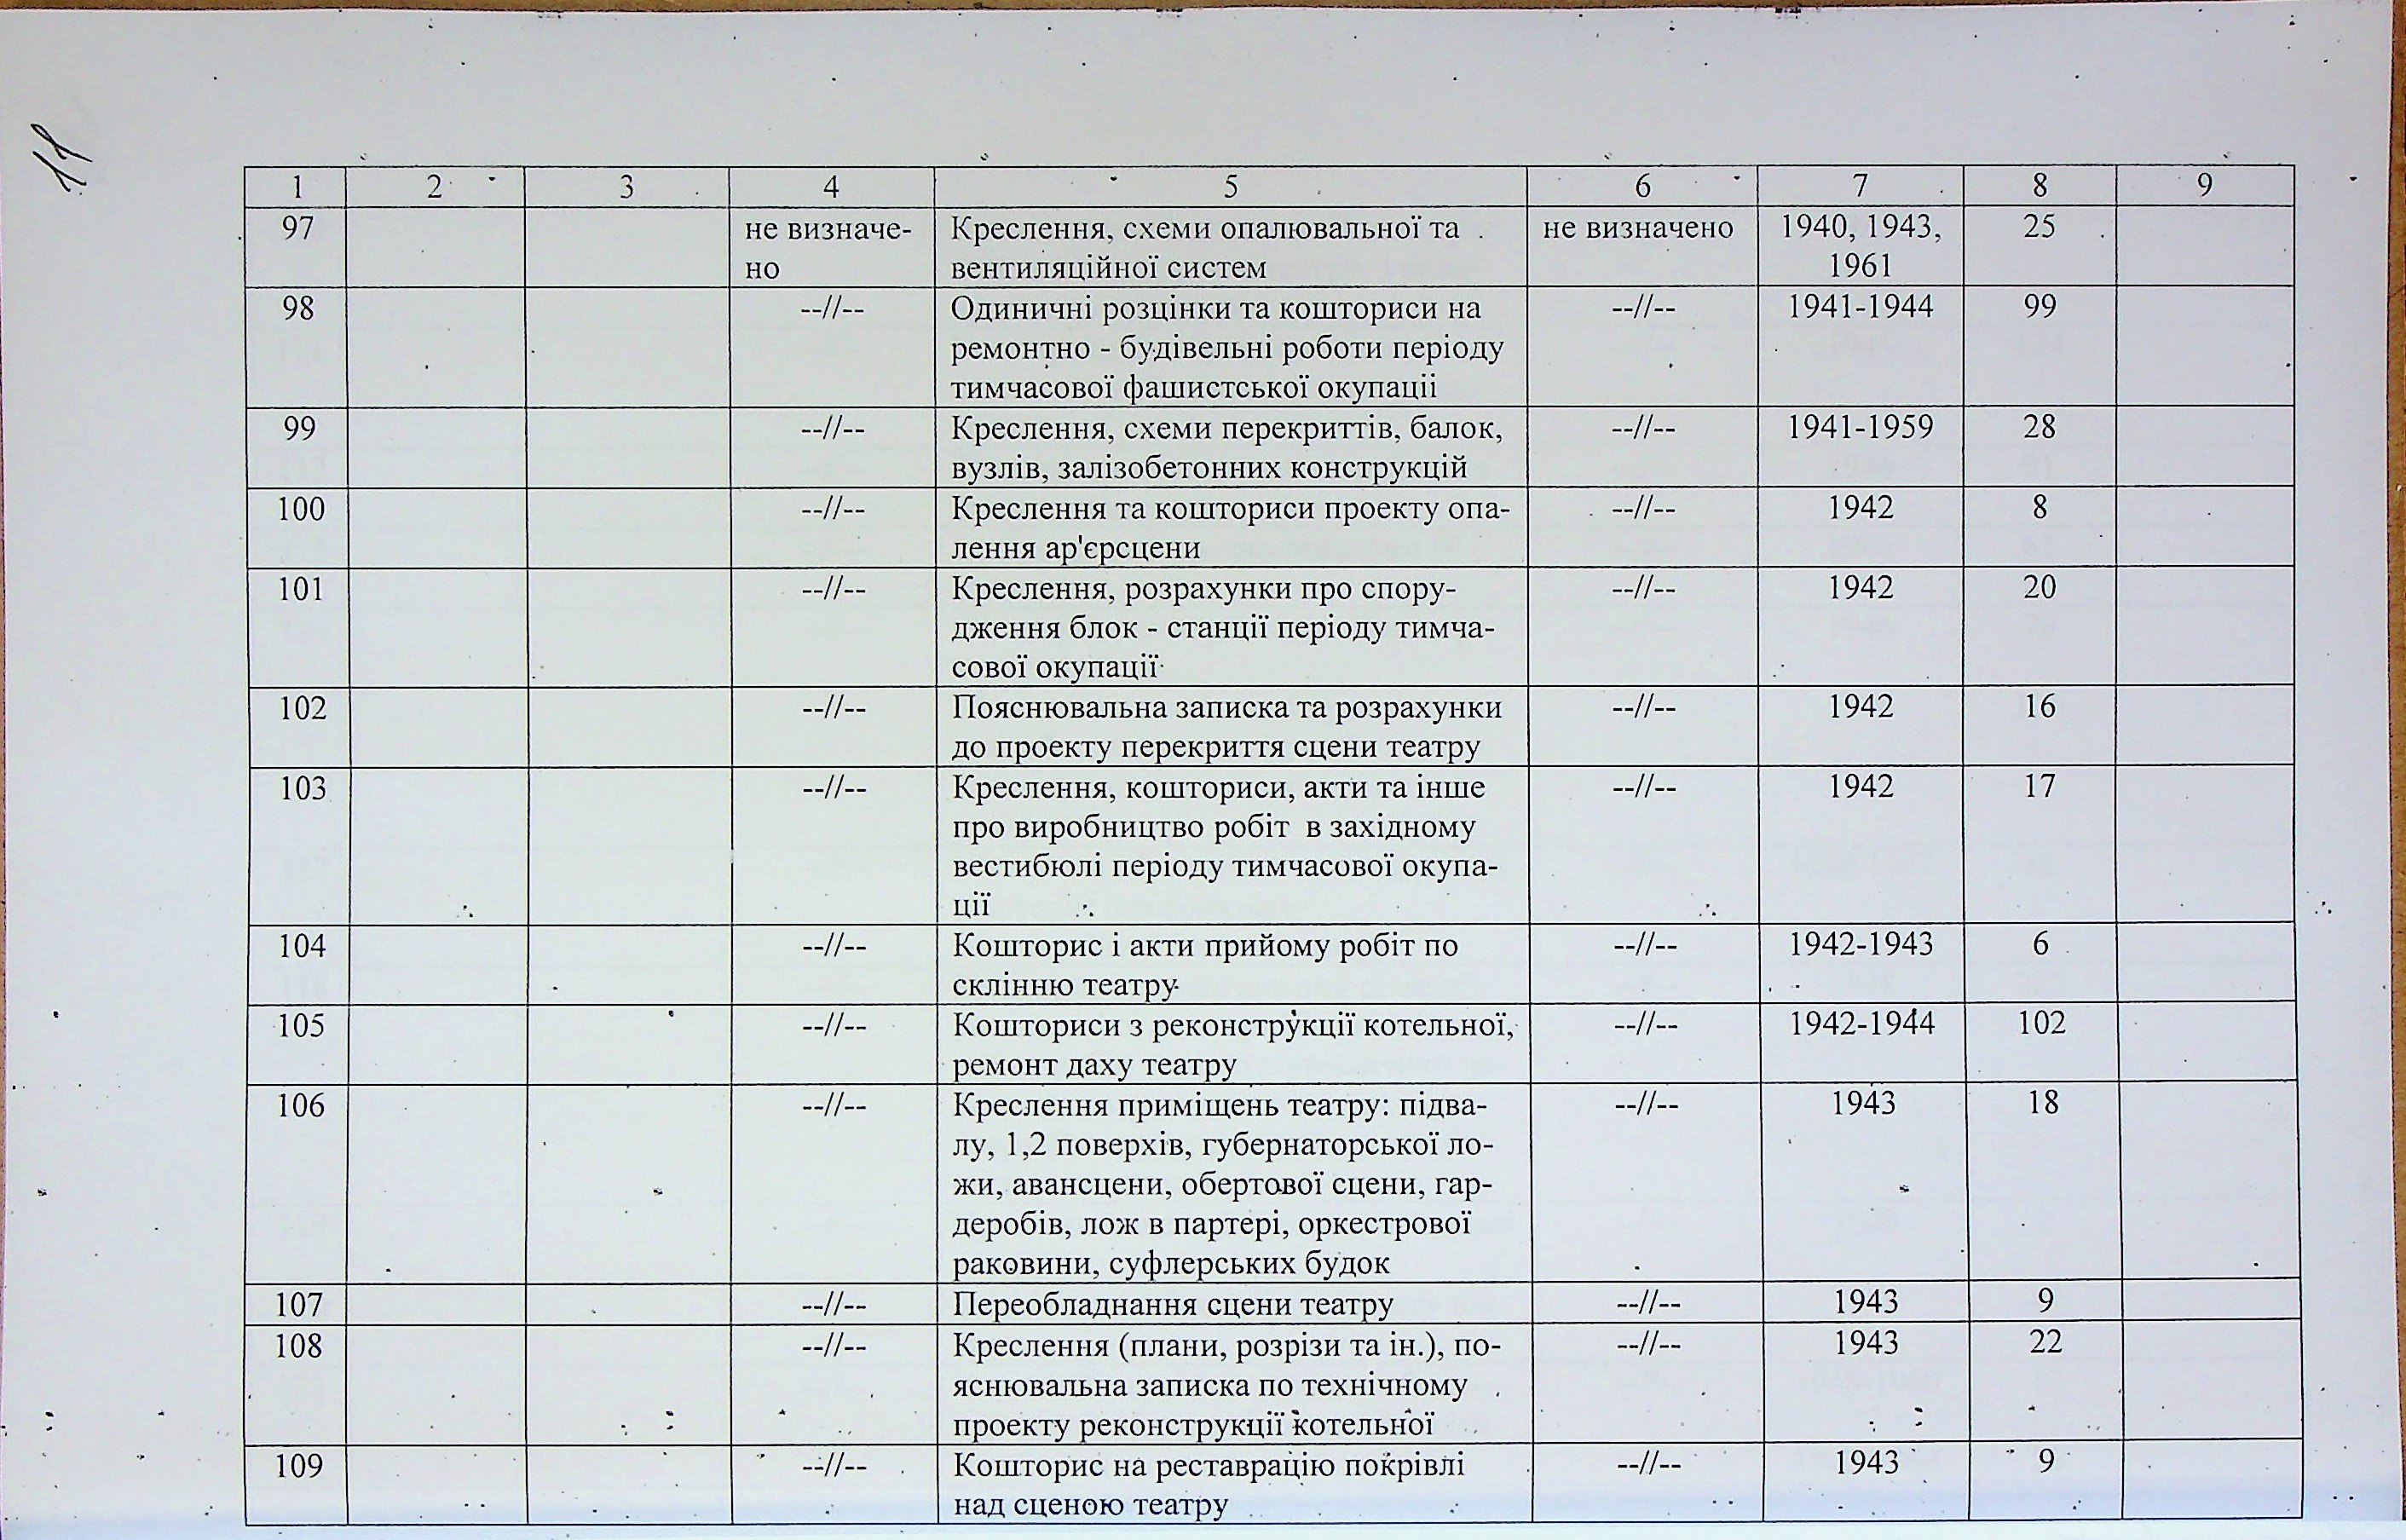 11
1 2 3 4 5 6 7 8 9
97 не визначе- Креслення, схеми опалювальної та не визначено 1940, 1943, 25
но вентиляційної систем 1961
98 --//-- Одиничні розцінки та кошториси на --//-- 1941-1944 99
ремонтно - будівельні роботи періоду
тимчасової фашистської окупації
99 --//-- Креслення, схеми перекриттів, балок, --//-- 1941-1959 28
вузлів, залізобетонних конструкцій
100 --//-- Креслення та кошториси проекту опа- --//-- 1942 8
лення ар'єрсцени
101 --//-- Креслення, розрахунки про спору- --//-- 1942 20
дження блок - станції періоду тимча-
сової окупації
102 --//-- Пояснювальна записка та розрахунки --//-- 1942 16
до проекту перекриття сцени театру
103 --//-- Креслення, кошториси, акти та інше --//-- 1942 17
про виробництво робіт в західному
вестибюлі періоду тимчасової окупа-
ції
104 --//-- Кошторис і акти прийому робіт по --//-- 1942-1943 6
склінню театру
105 --//-- Кошториси з реконструкції котельної, --//-- 1942-1944 102
ремонт даху театру
106 --//-- Креслення приміщень театру: підва- --//-- 1943 18
лу, 1,2 поверхів, губернаторської ло-
жи, авансцени, обертової сцени, гар-
деробів, лож в партері, оркестрової
раковини, суфлерських будок
107 --//-- Переобладнання сцени театру --//-- 1943 9
108 --//-- Креслення (плани, розрізи та ін.), по- --//-- 1943 22
яснювальна записка по технічному
проекту реконструкції котельної
109 --//-- Кошторис на реставрацію покрівлі --//-- 1943 9
над сценою театру